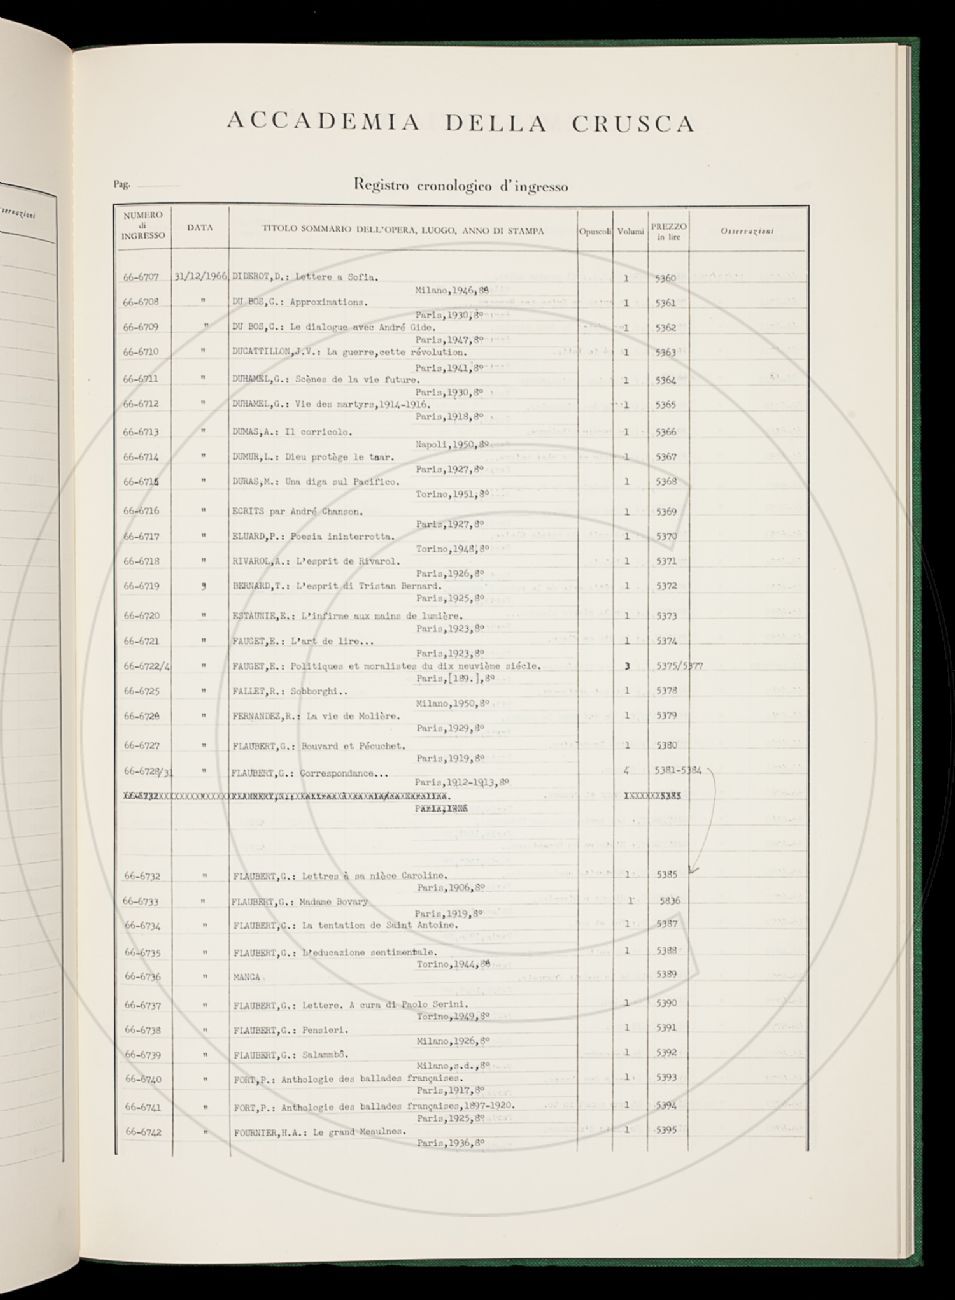 ervazioni
ACCADEMIA DELLA CRUSCA
Pag.
Registro cronologico d'ingresso
NUMERO di INGRESSO DATA TITOLO SOMMARIO DELL'OPERA, LUOGO, ANNO DI STAMPA Opuscoli Volumi PREZZO in lire Osservazioni
66-6707 31/12/1966 DIDEROT,D.: Lettere a Sofia. 1 5360
Milano,1946,8º
66-6708 " DU BOS,C.: Approximations. 1 5361
Paris,1930,8º
66-6709 " DU BOS,C.: Le dialogue avec André Gide. 1 5362
Paris,1947,8º
66-6710 " DUCATTILLON,J.V.: La guerre,cette révolution. 1 5363
Paris,1941,8º
66-6711 " DUHAMEL,G.: Scènes de la vie future. 1 5364
Paris,1930,8º
66-6712 " DUHAMEL,G.: Vie des martyrs,1914-1916. 1 5365
Paris,1918,8º
66-6713 " DUMAS,A.: Il corricolo. 1 5366
Napoli,1950,8º
66-6714 " DUMUR,L.: Dieu protège le tsar. 1 5367
Paris,1927,8º
66-6715 " DURAS,M.: Una diga sul Pacifico. 1 5368
Torino,1951,8º
66-6716 " ECRITS par André Chanson. 1 5369
Paris,1927,8º
66-6717 " ELUARD,P.: Poesia ininterrotta. 1 5370
Torino,1948,8º
66-6718 " RIVAROL,A.: L'esprit de Rivarol. 1 5371
Paris,1926,8º
66-6719 9 BERNARD,T.: L'esprit di Tristan Bernard. 1 5372
Paris,1925,8º
66-6720 " ESTAUNIE,E.: L'infirme aux mains de lumière. 1 5373
Paris,1923,8º
66-6721 " FAUGET,E.: L'art de lire... 1 5374
Paris,1923,8º
66-6722/4 " FAUGET,E.: Politiques et moralistes du dix neuvième siécle. 3 5375/5377
Paris,[189.],8º
66-6725 " FALLET,R.: Sobborghi.. 1 5378
Milano,1950,8º
66-6726 " FERNANDEZ,R.: La vie de Molière. 1 5379
Paris,1929,8º
66-6727 " FLAUBERT,G.: Bouvard et Pécuchet. 1 5380
Paris,1919,8º
66-6728/31 " FLAUBERT,G.: Correspondance... 4 5381-5384
Paris,1912-1913,8º
66-6732 5385
66-6732 " FLAUBERT,G.: Lettres à sa nièce Caroline. 1 5385
Paris,1906,8º
66-6733 " FLAUBERT,G.: Madame Bovary 1 5836
Paris,1919,8º
66-6734 " FLAUBERT,G.: La tentation de Saint Antoine. 1 5387
66-6735 " FLAUBERT,G.: L'educazione sentimentale. 1 5388
Torino,1944,8º
66-6736 " MANCA 5389
66-6737 " FLAUBERT,G.: Lettere. A cura di Paolo Serini. 1 5390
Torino,1949,8º
66-6738 " FLAUBERT,G.: Pensieri. 1 5391
Milano,1926,8º
66-6739 " FLAUBERT,G.: Salammbô. 1 5392
Milano,s.d.,8º
66-6740 " FORT,P.: Anthologie des ballades françaises. 1 5393
Paris,1917,8º
66-6741 " FORT,P.: Anthologie des ballades françaises,1897-1920. 1 5394
Paris,1925,8º
66-6742 " FOURNIER,H.A.: Le grand Meaulnes. 1 5395
Paris,1936,8º